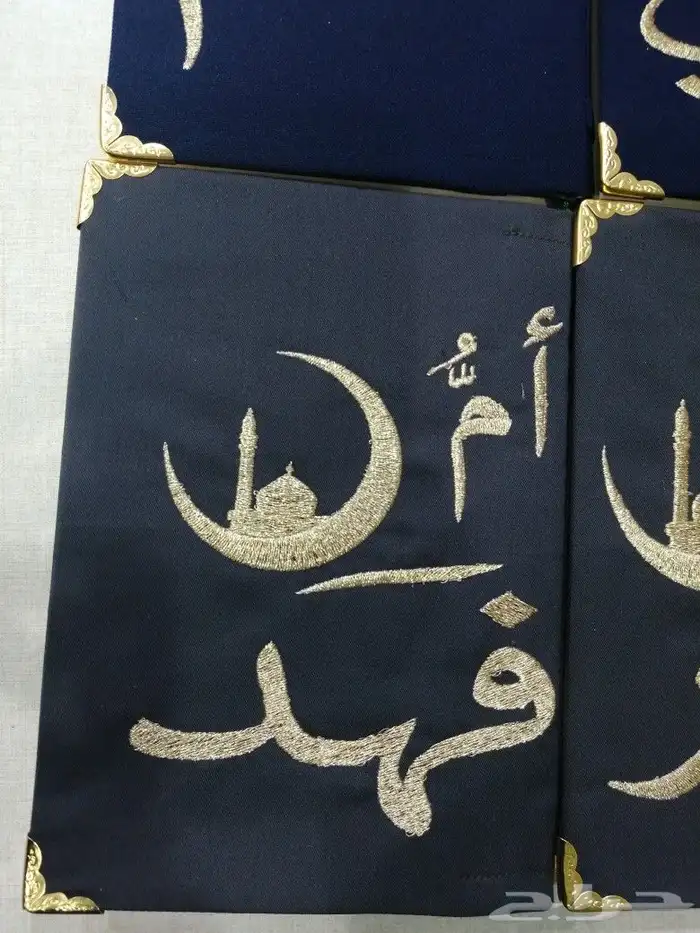 أمُّ
فهد
حراج